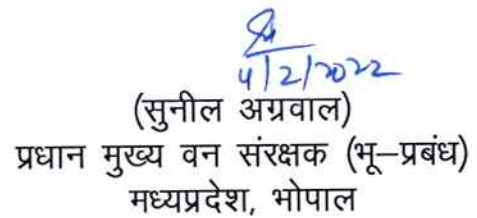 4/2/2022
(सुनील अग्रवाल)
प्रधान मुख्य वन संरक्षक (भू–प्रबंध)
मध्यप्रदेश, भोपाल